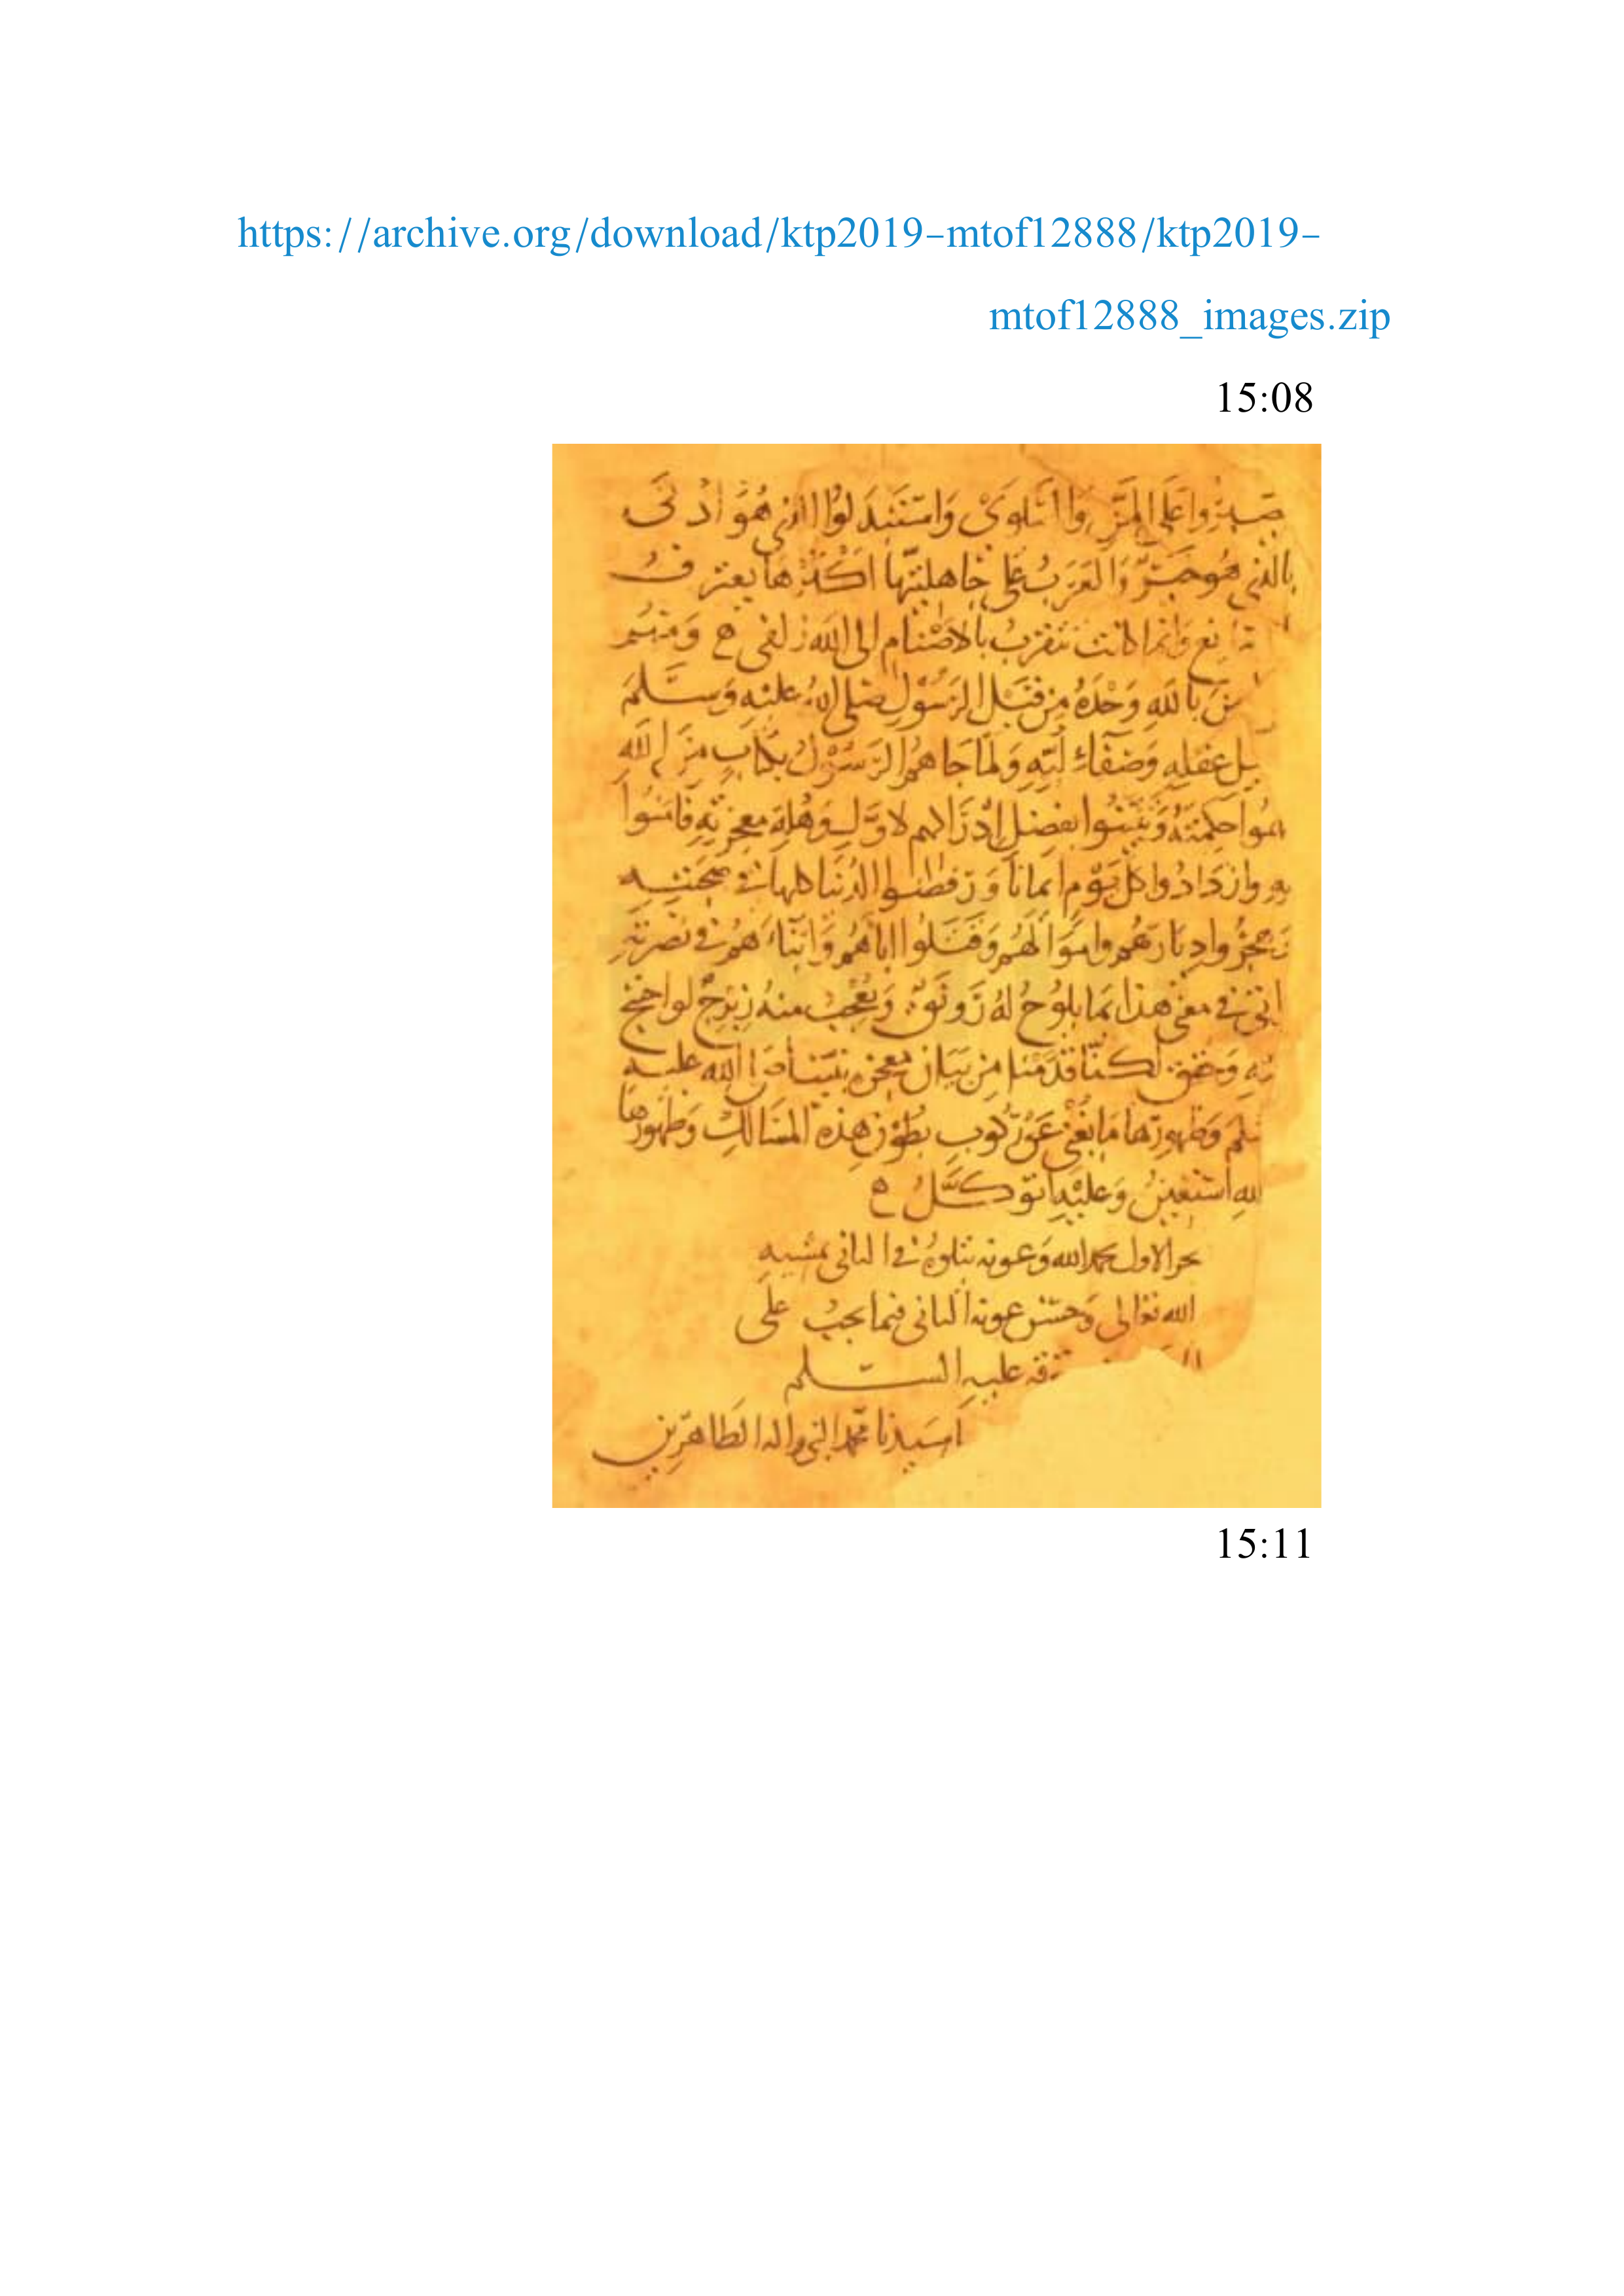 https://archive.org/download/ktp2019-mtof12888/ktp2019-
mtof12888_images.zip
15:08
صبروا على المن والسلوى واستبدلوا الذي هو أدنى
بالذي هو خير والعرب على جاهليتها أكثرها يعترف
نع وانما كانت تتقرب بالاصنام الى الله زلفى ومنهم
من بالله وحده من قبل الرسول صلى الله عليه وسلم
يل عقله وصفاء لبه ولما جاهم الرسول بكتاب من الله
هموا حكمته وتبينوا بفضل إدراكهم لاول وهلة معجزته فامنوا
به وازدادوا كل يوم ايمانا ورفضوا الدنيا كلها في صحبته
وهجروا ديارهم واموالهم وقتلوا اباهم وابناءهم في نصرته
اتى في معنى هذا بما يلوح له رونق ويعجب منه زبرج لو احتيج
يه وحقق لكنا قدمنا من بيان معجزه نبينا صلى الله عليه
سلم وظهورها ما يغني عن ركوب بطون هذه المسالك وظهورها
الله استعين وعليه اتوكل
الاول بحمد الله وعونه يتلوه في الثاني بمشية
الله تعالى وحسن عونه الثاني فيما يجب على
عليه السلم
سيدنا محمد النبي واله الطاهرين
15:11